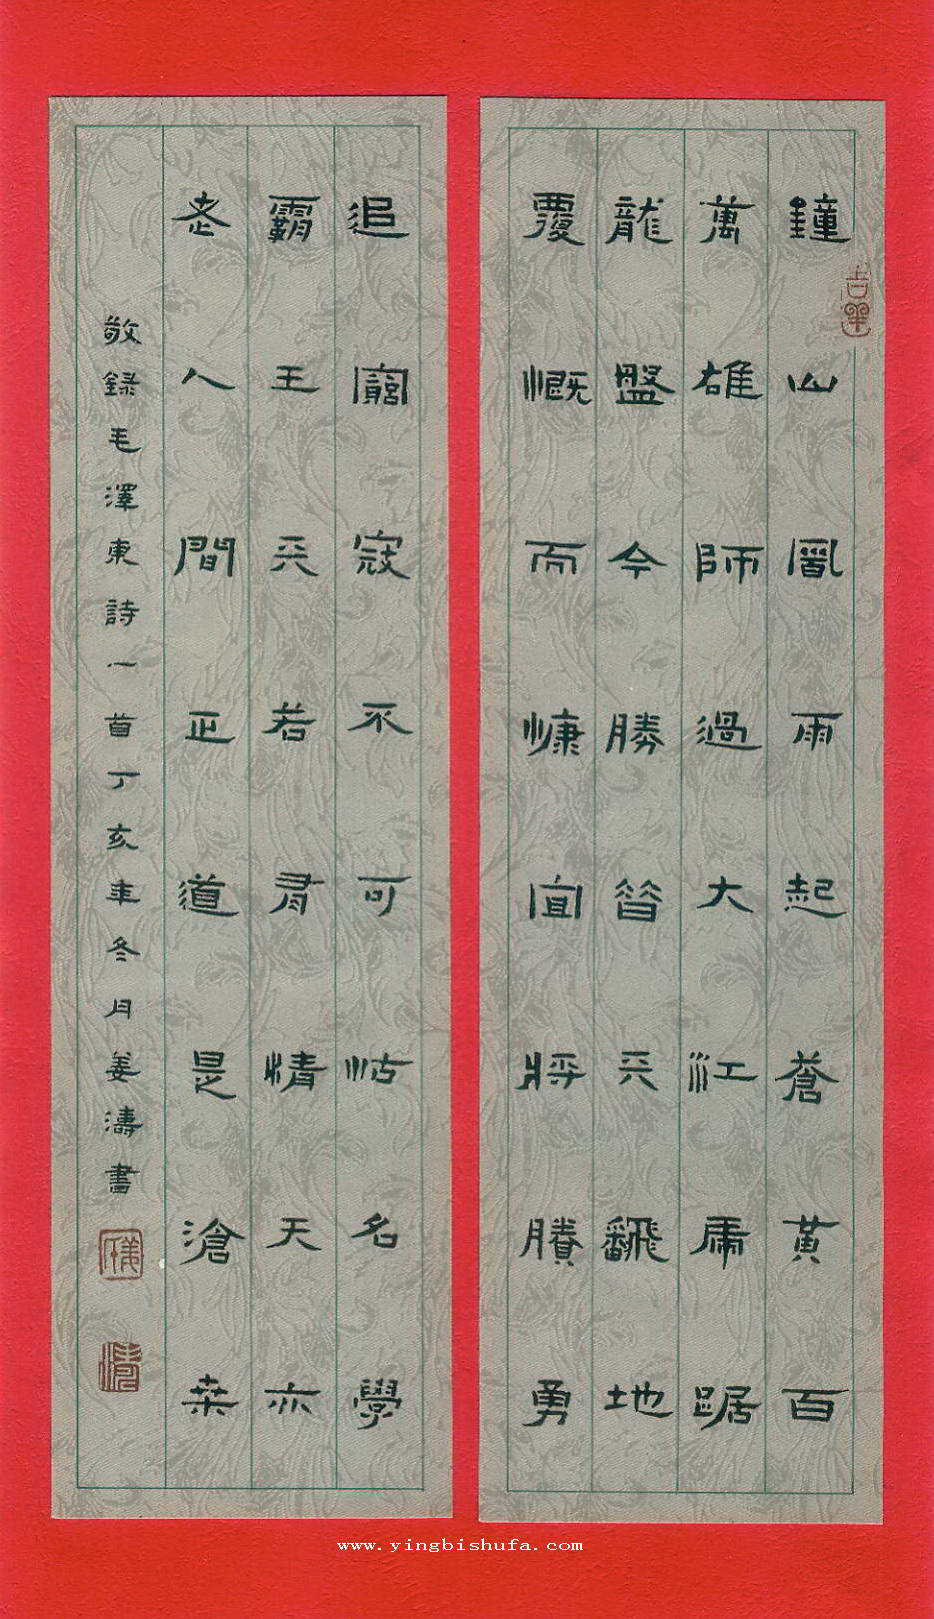 鐘山風雨起蒼黃百
萬雄師過大江虎踞
龍盤今勝昔天飜地
覆慨而慷宜將賸勇
追窮寇不可沽名學
霸王天若有情天亦
老人間正道是滄桑
敬錄毛澤東詩一首丁亥年冬月姜濤書
www.yingbishufa.com